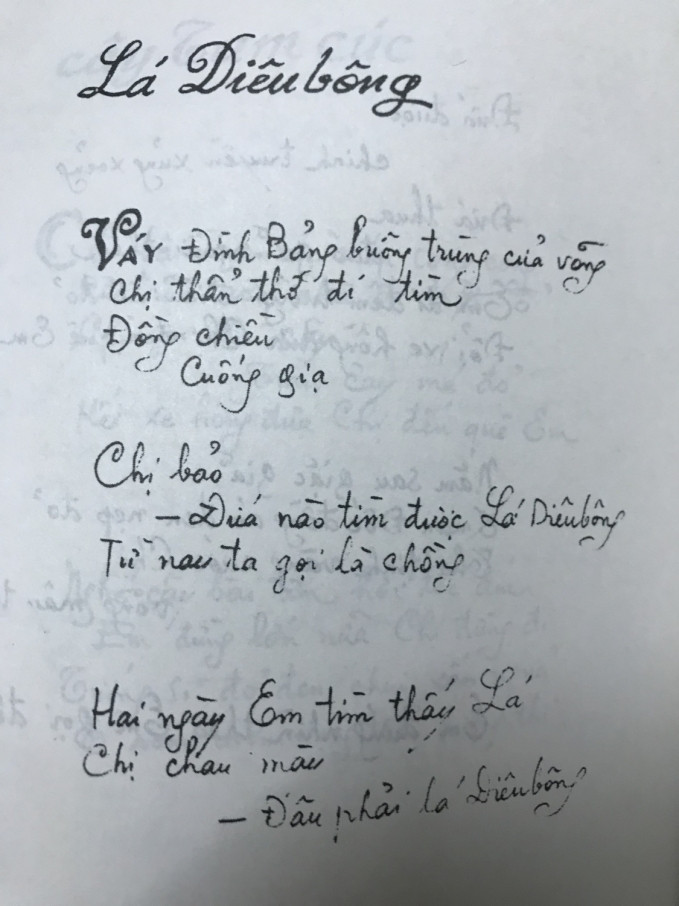 Lá Diêubông
Váy Đình Bảng buông trùng cửa võng
Chị thẩn thơ đi tìm
Đồng chiều
Cuống rạ
Chị bảo
– Đứa nào tìm được Lá Diêubông
Từ nay ta gọi là chồng
Hai ngày Em tìm thấy Lá
Chị chau mày
– Đâu phải Lá Diêubông